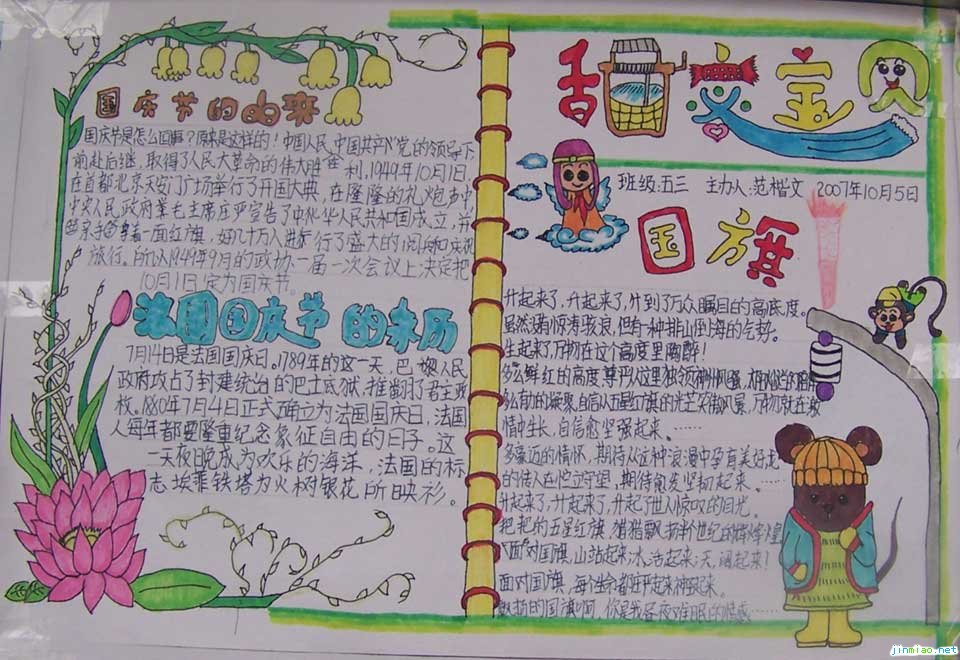 国庆节的由来
国庆节是怎么回事?原来是这样的!中国人民,中国共产党的领导下
前赴后继,取得了人民大革命的伟大胜利,1949年10月1日
在首都北京天安门广场举行了开国大典,在隆隆的礼炮声中
中央人民政府 毛主席庄严宣告了中华人民共和国成立,并
一面红旗,好几十万人进行了盛大的阅
旅行。所以1949年9月的政协一届一次会议上决定把
10月1日定为国庆节。
法国国庆节的来历
7月14日是法国国庆日。1789年的这一天,巴黎人民
政府攻占了封建统治的巴士底狱,推翻了君主政
权。1880年7月4日正式确立为法国国庆日,法国
人每年都要隆重纪念象征自由的日子。这
一天夜晚成为欢乐的海洋,法国的标
志埃菲铁塔为火树银花所映衫。
甜蜜宝
班级:五三 主办人:范楷文 2007年10月5日
国旗
升起来了,升起来了,升到了万众瞩目的高度。
虽然没有惊涛骇浪,但有一种排山倒海的气势。
生起来了,万物在这个高度里
多么鲜红的高度,尊严从这里
自信从五星红旗的光芒
情中生长,自信愈坚强起来。……
多邈远的情怀,期待从这种浪漫中孕育美好
的传人在伫立守望,期待愈发坚韧起来。……
升起来了,升起来了,升起了世人惊叹的目光。
把把的五星红旗,猎猎飘扬
面对国旗,山站起来,水活起来,天阔起来!
面对国旗,每个生命都
的国旗啊,你是我昼夜难眠的情感……
jinmiao.net